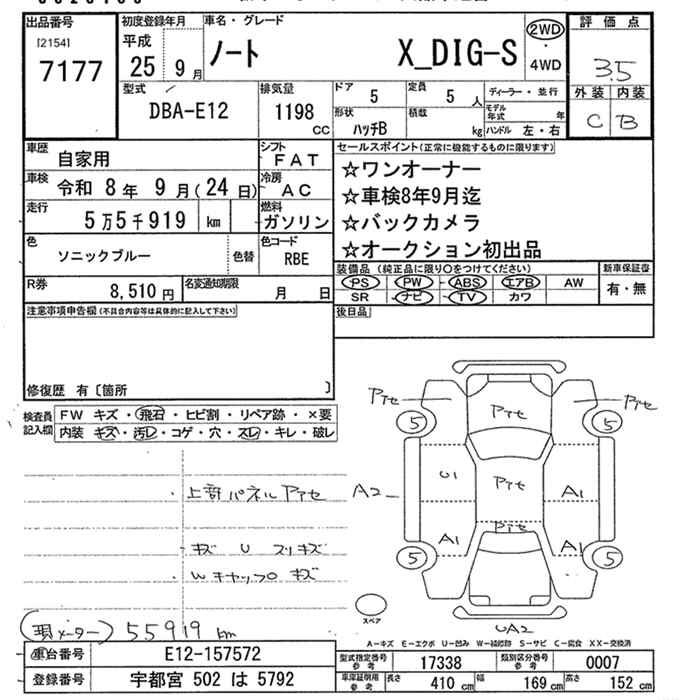 出品番号 初度登録年月 車名・グレード 評価点
[2154] 平成 ノート X_DIG-S 2WD
7177 25年9月 ・4WD 3.5
型式 排気量 ドア 5 定員 5人 ディーラー・並行 外装 内装
DBA-E12 1198cc 形状 ハッチB 積載 kg モデル年式 年 C B
ハンドル 左・右
車歴 自家用 シフト FAT セールスポイント(正常に機能するものに限ります)
車検 令和 8年 9月(24日) 冷房 AC ☆ワンオーナー
☆車検8年9月迄
走行 5万5千919 km 燃料 ガソリン ☆バックカメラ
色 ソニックブルー 色替 色コード RBE ☆オークション初出品
装備品(純正品に限り○をつけてください) 新車保証書
R券 8,510円 名変通知期限 月 日 PS PW ABS エアB AW 有・無
SR ナビ TV カワ
注意事項申告欄(不具合内容等は具体的に記入して下さい) 後日品
修復歴 有〔箇所 〕
検査員記入欄 FW キズ・飛石・ヒビ割・リペア跡・×要
内装 キズ・汚レ・コゲ・穴・スレ・キレ・破レ
Pアセ Pアセ Pアセ
5 5
U1 Pアセ A1
・上部パネルPアセ A2
A1 Pアセ A1
・キズ U スリキズ
5 5
・Wキャップ キズ
スペア
UA2
(現メーター) 55919km
A-キズ E-エクボ U-凹み W-補修跡 S-サビ C-腐食 XX-交換済
車台番号 E12-157572 型式指定番号 参考 17338 類別区分番号 参考 0007
登録番号 宇都宮 502 は 5792 車庫証明用 参考 長さ 410cm 幅 169cm 高さ 152cm